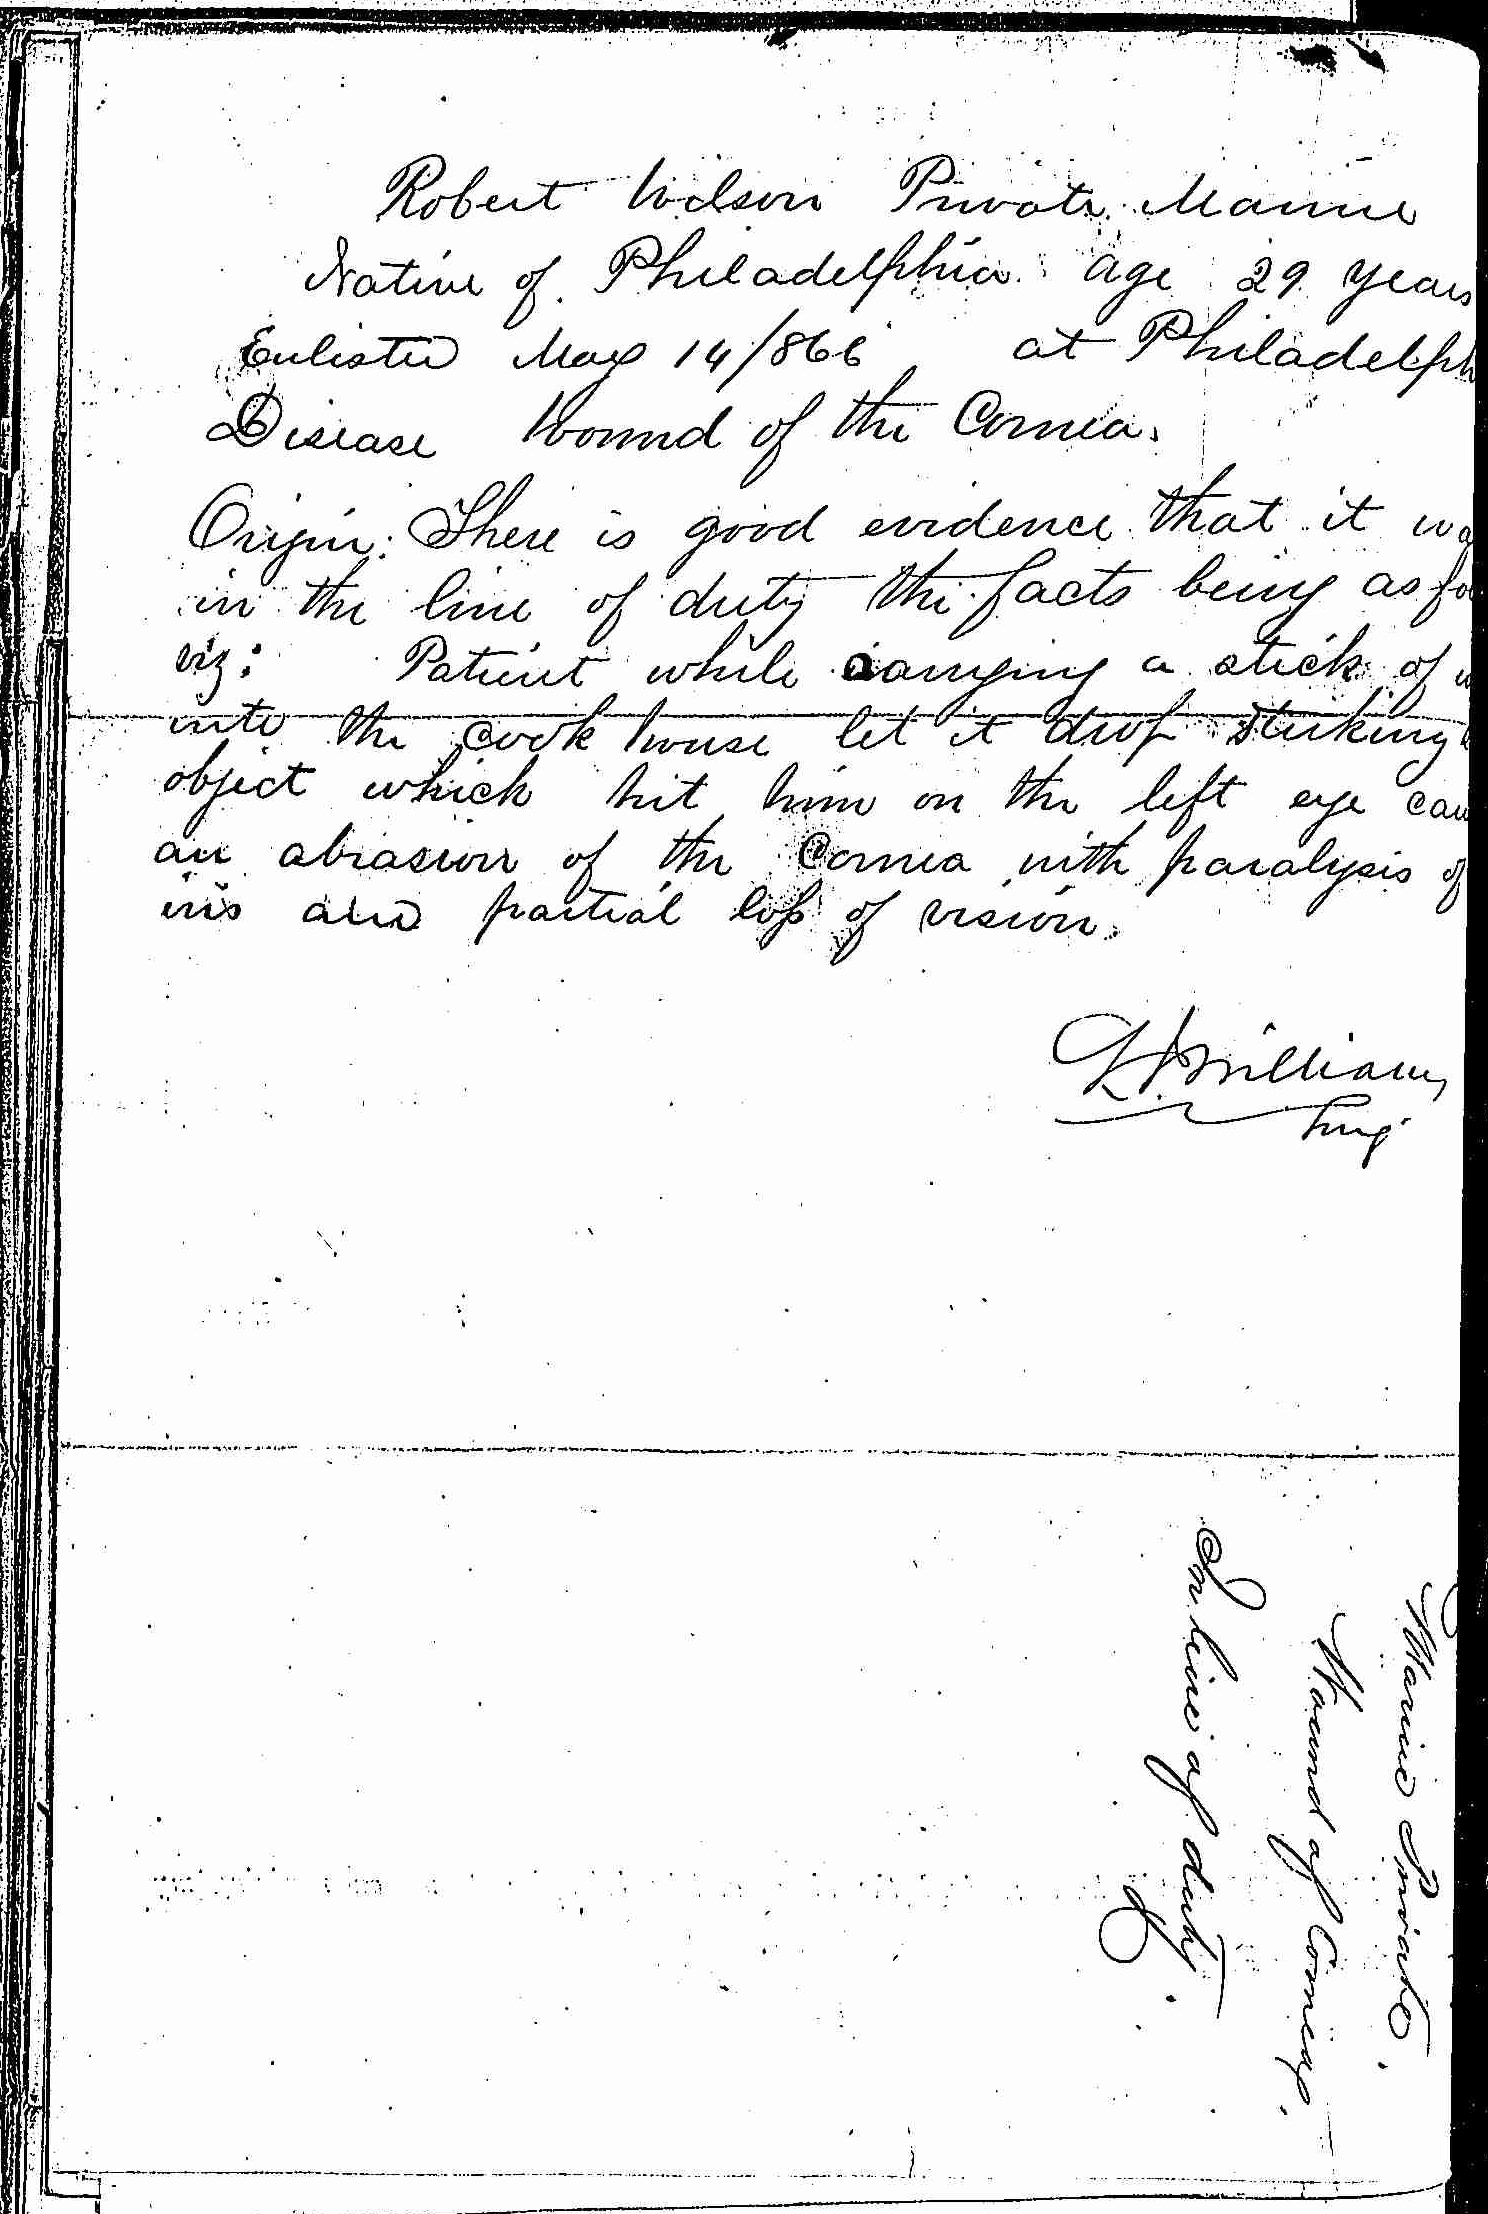 Robert Wilson Private Marine
Native of Philadelphia age 29 years
Enlisted May 14/866 at Philadelph
Disease Wound of the Cornea.
Origin: There is good evidence that it wa
in the line of duty the facts being as fo
viz: Patient while carrying a stick of w
into the cook house let it drop striking
object which hit him on the left eye cau
an abrasion of the Cornea with paralysis of
iris and partial loss of vision.
Williams
Surg
Marine Private.
Wound of Cornea.
In line of duty.